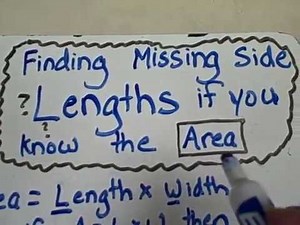 Finding Missing Side
? Lengths if you
?
know the Area
ea = Length x Width
then